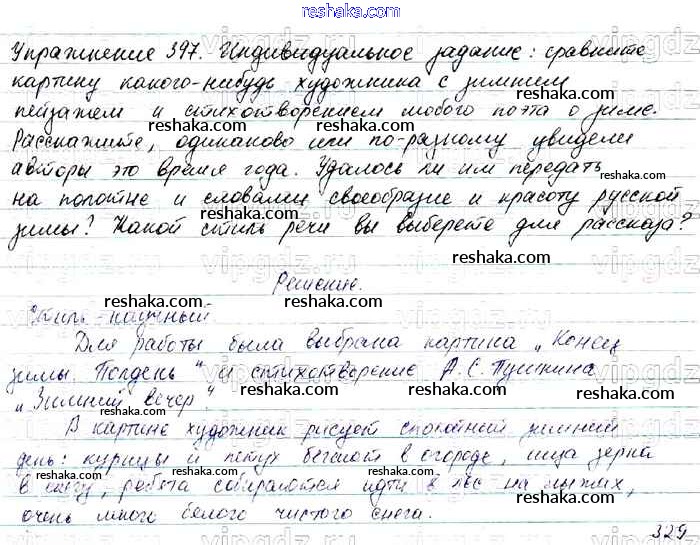 reshaka.com
Упражнение 397. Индивидуальное задание: сравните
картину какого-нибудь художника с зимним
reshaka.com
пейзажем и стихотворением любого поэта о зиме.
reshaka.com reshaka.com
Расскажите, одинаково или по-разному увидели
авторы это время года. Удалось ли им передать
reshaka.com reshaka.com
на полотне и словами своеобразие и красоту русской
reshaka.com
зимы? Какой стиль речи вы выберете для рассказа?
reshaka.com
Решение.
reshaka.com reshaka.com
Стиль - научный.
Для работы была выбрана картина "Конец
reshaka.com
зимы. Полдень" и стихотворение А.С. Пушкина
reshaka.com reshaka.com
"Зимний вечер".
reshaka.com
В картине художник рисует спокойный зимний
день: курицы и петух бегают в огороде, ища зерна
reshaka.com reshaka.com
в снегу, ребята собираются идти в лес на лыжах,
очень много белого чистого снега.
reshaka.com
329